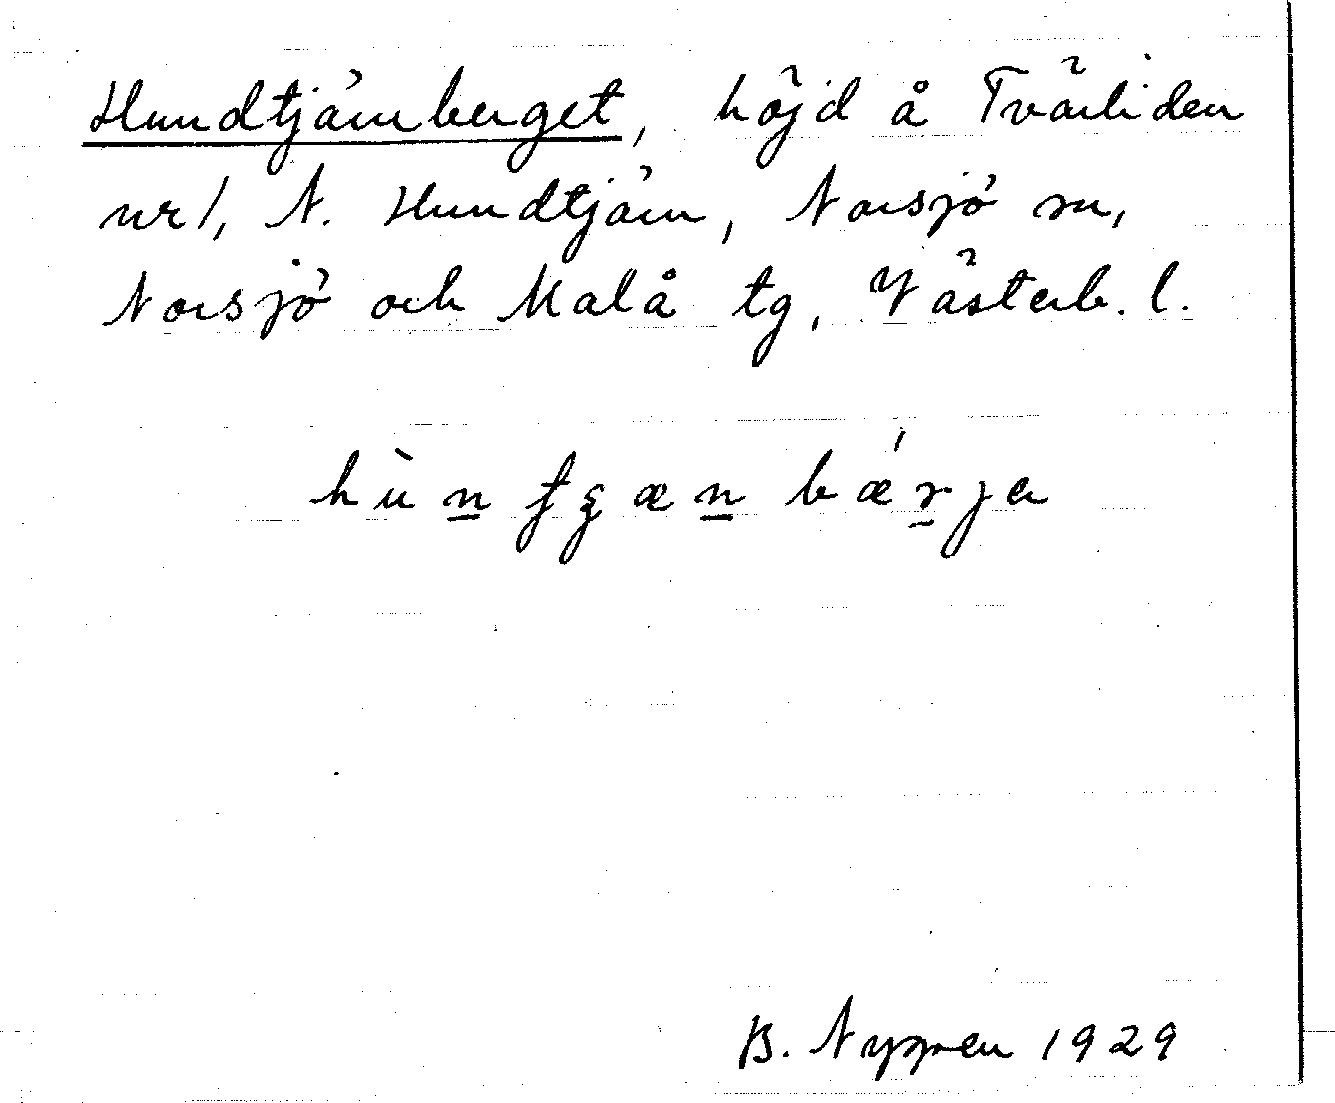 Hundtjärnberget, höjd å Tvärliden
nr 1, N. Hundtjärn, Norsjö sn,
Norsjö och Malå tg, Västerb. l.
B. Nygren 1929